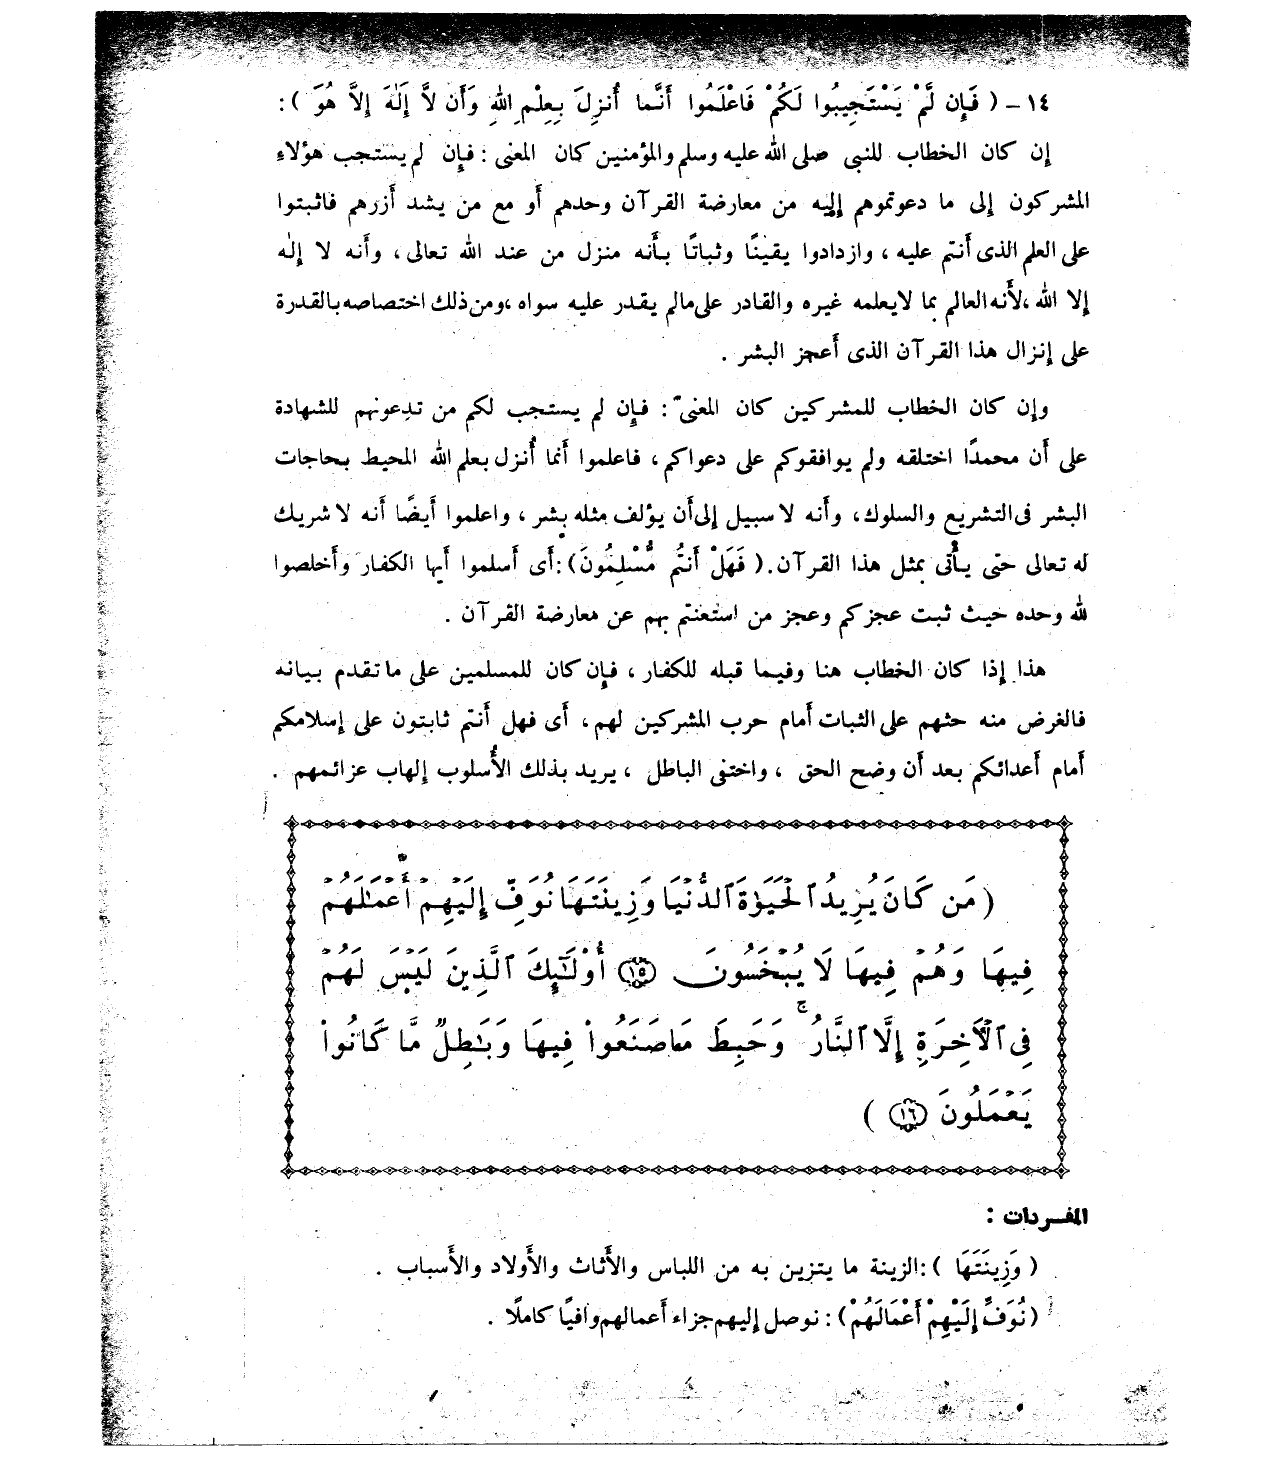 ١٤ – ( فَإِن لَّمْ يَسْتَجِيبُوا لَكُمْ فَاعْلَمُوا أَنَّما أُنزِلَ بِعِلْمِ اللهِ وَأَن لاَّ إِلَهَ إِلاَّ هُوَ ) :
إن كان الخطاب للنبى صلى الله عليه وسلم والمؤمنين كان المعنى : فإن لم يستجب هؤلاءِ
المشركون إلى ما دعوتموهم إليه من معارضة القرآن وحدهم أو مع من يشد أَزرهم فاثبتوا
على العلم الذى أنتم عليه ، وازدادوا يقينًا وثباتًا بأَنه منزل من عند الله تعالى ، وأَنه لا إله
إلا الله ، لأَنه العالم بما لايعلمه غيره والقادر على مالم يقدر عليه سواه ، ومن ذلك اختصاصه بالقدرة
على إنزال هذا القرآن الذى أَعجز البشر .
وإن كان الخطاب للمشركين كان المعنى : فإِن لم يستجب لكم من تدعونهم للشهادة
على أَن محمدًا اختلقه ولم يوافقوكم على دعواكم ، فاعلموا أَنما أُنزل بعلم الله المحيط بحاجات
البشر فى التشريع والسلوك ، وأَنه لا سبيل إلى أن يؤلف مثله بشر ، واعلموا أَيضًا أَنه لا شريك
له تعالى حتى يأتى بمثل هذا القرآن . ( فَهَلْ أَنتُم مُّسْلِمُونَ ) : أَى أَسلموا أَيها الكفار وأَخلصوا
لله وحده حيث ثبت عجزكم وعجز من استعنتم بهم عن معارضة القرآن .
هذا إذا كان الخطاب هنا وفيما قبله للكفار ، فإن كان للمسلمين على ما تقدم بيانه
فالغرض منه حثهم على الثبات أَمام حرب المشركين لهم ، أَى فهل أَنتم ثابتون على إسلامكم
أَمام أَعدائكم بعد أَن وضح الحق ، واختفى الباطل ، يريد بذلك الأُسلوب إلهاب عزائمهم .
( مَن كَانَ يُرِيدُ ٱلْحَيَوٰةَ ٱلدُّنْيَا وَزِينَتَهَا نُوَفِّ إِلَيْهِمْ أَعْمَٰلَهُمْ
فِيهَا وَهُمْ فِيهَا لَا يُبْخَسُونَ ۝١٥ أُوْلَٰٓئِكَ ٱلَّذِينَ لَيْسَ لَهُمْ
فِى ٱلْأَخِرَةِ إِلَّا ٱلنَّارُ ۚ وَحَبِطَ مَاصَنَعُواْ فِيهَا وَبَٰطِلٌ مَّا كَانُواْ
يَعْمَلُونَ ۝١٦ )
المفـردات :
( وَزِينَتَهَا ) : الزينة ما يتزين به من اللباس والأَثاث والأَولاد والأَسباب .
( نُوَفِّ إِلَيْهِمْ أَعْمَالَهُمْ ) : نوصل إليهم جزاء أَعمالهم وافيًا كاملًا .